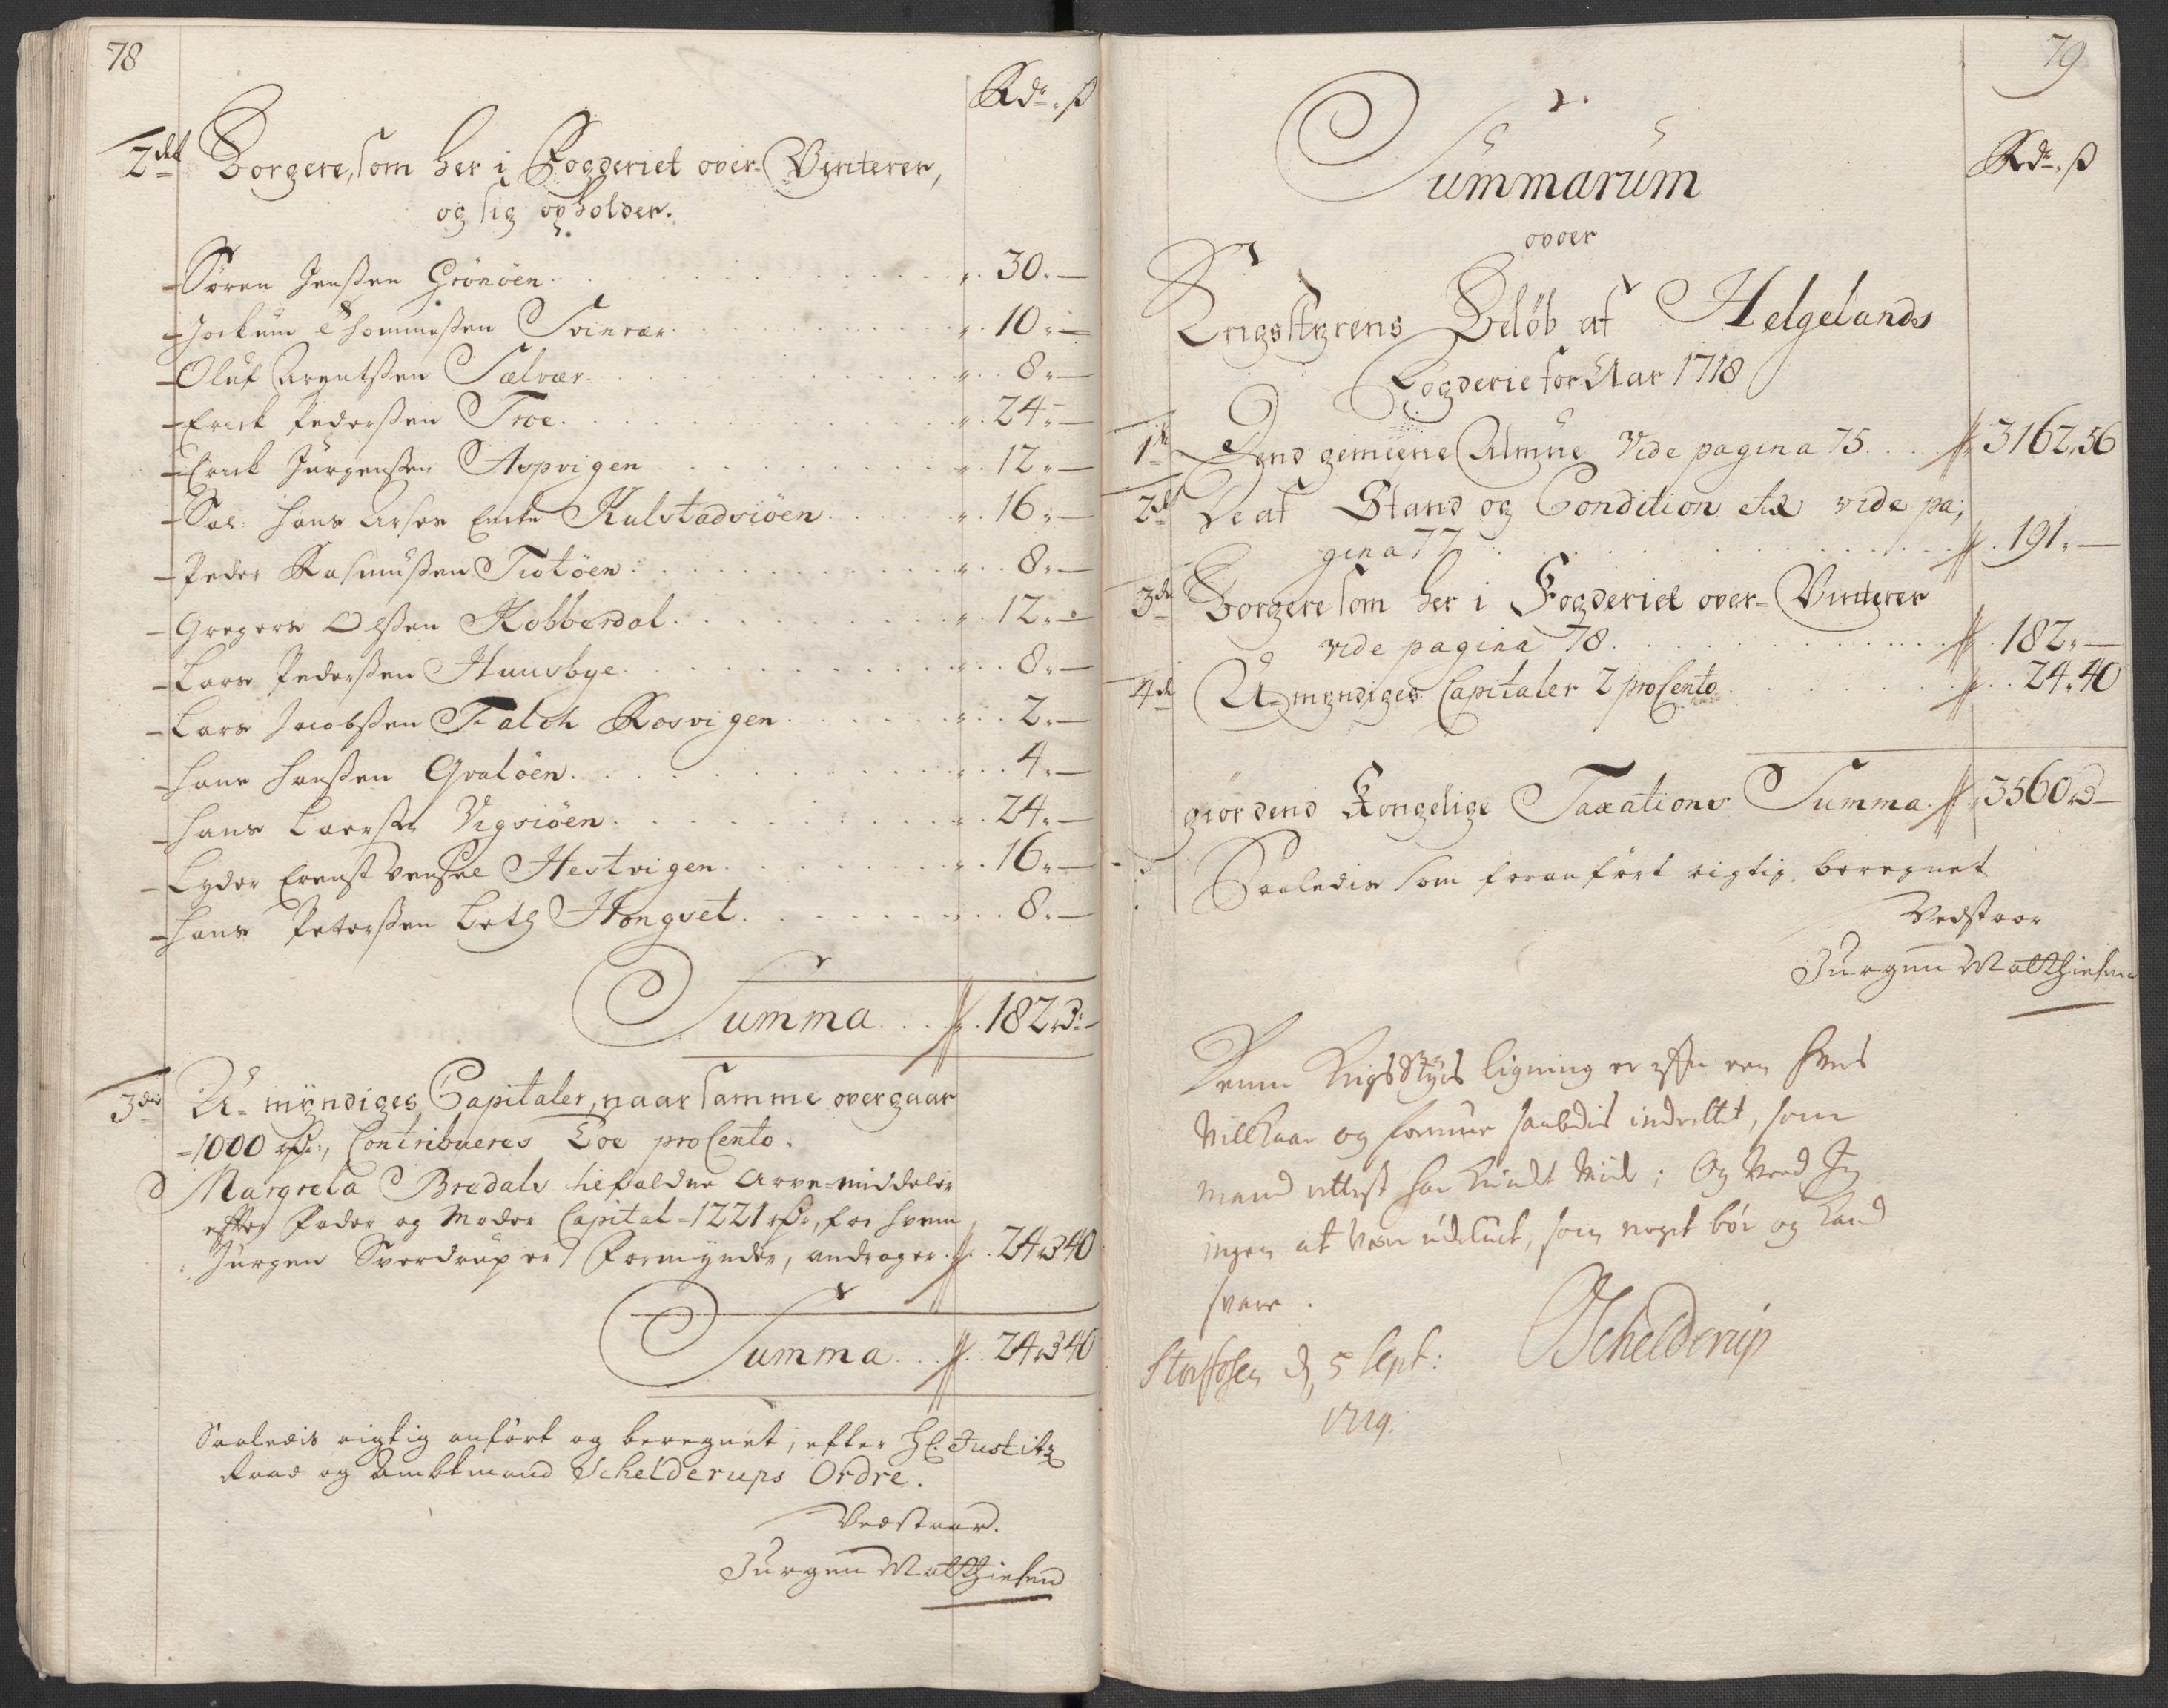 78
Rdr. ß
2det Borgere, som her i Fogderiet over-Vinterer,
og sig opholder.
Søren Jenssen Grönöen . . . 30 „ —
Jochum Thommessen Svinvær . . . 10 „ —
Oluf Arentssen Sælvær . . . 8 „ —
Erick Pederssen Troe . . . 24 „ —
Erick Jürgenssen Aspvigen . . . 12 „ —
Sal: Hans Enke Kulstadsiöen . . . 16 „ —
Peder Rasmussen Tiotöen . . . 8 „ —
Gregers Olssen Kobberdal . . . 12 „ —
Lars Pederssen Huusbye . . . 8 „ —
Lars Jacobssen Falch Rosvigen . . . 2 „ —
Hans Hanssen Qvaløen . . . 4 „ —
Hans Larssen Vigsiöen . . . 24 „ —
Lyder Ernst Hestvigen . . . 16 „ —
Hans Peterssen Hongset . . . 8 „ —
Summa . . . 182 rd: —
3die U-mÿndiges Capitaler, naar samme overgaar
1000 rdr, Contribueres Toe proCento.
Margreta Bredals tilfaldne Arve-middeler
efter Fader og Moder Capital = 1221 rdr, for hvem
Jürgen Sverdrup er Formynder, andrager . . 24 rd 40
Summa . . . 24 rd 40
Saaledis rigtig anført og beregnet, efter Hr. Justitz
Raad og Ambtmand Schelderups Ordre.
Vedstaar.
Jürgen Matthiesen
79
Summarum
Rdr. ß
over
Krigsstyrens Beløb af Helgelands
Fogderie for Aar 1718
1t Dend gemeene Almue Vide pagina 75 . . 3162 „ 56
2det De af Stand og Condition etc vide pa;
gina 77 . . . 191 „ —
3de Borgere som her i Fogderiet over-Vinterer
vide pagina 78 . . . 182 „ —
4de U-myndiges Capitaler 2 proCento . . . 24 „ 40
giør dend Kongelige Taxations Summa . 3560 rd —
Saaledis som foranført rigtig beregnet
Vedstaar
Jürgen Matthiesen
Denne Krigs Styrs ligning er efter een hvers
Vilkaar og formue saaledis indrettet, som
mand rettest har kundt ; Og Veed Jeg
ingen at Være udeluct, som noget bør og kand
svare.
d. 5 Sept:
Schelderup
1719.